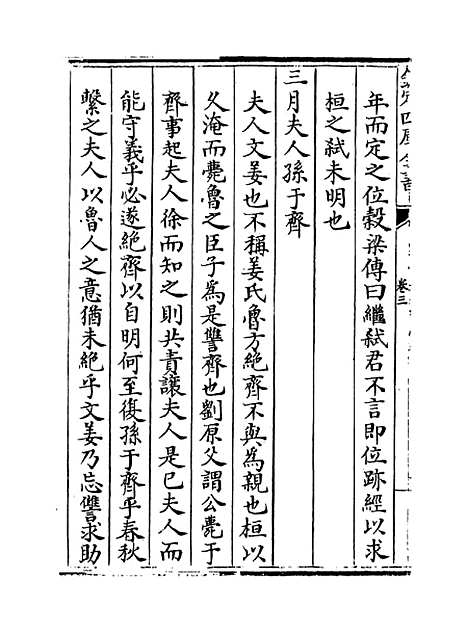 欽定四庫全書
卷三
年而定之位穀梁傳曰繼弑君不言即位跡經以求
桓之弑未明也
三月夫人孫于齊
夫人文姜也不稱姜氏魯方絶齊不與為親也桓以
乆淹而薨魯之臣子為是讐齊也劉原父謂公薨于
齊事起夫人徐而知之則共責讓夫人是已夫人而
能守義乎必遂絶齊以自明何至復孫于齊乎春秋
繫之夫人以魯人之意猶未絶乎文姜乃忘讐求助